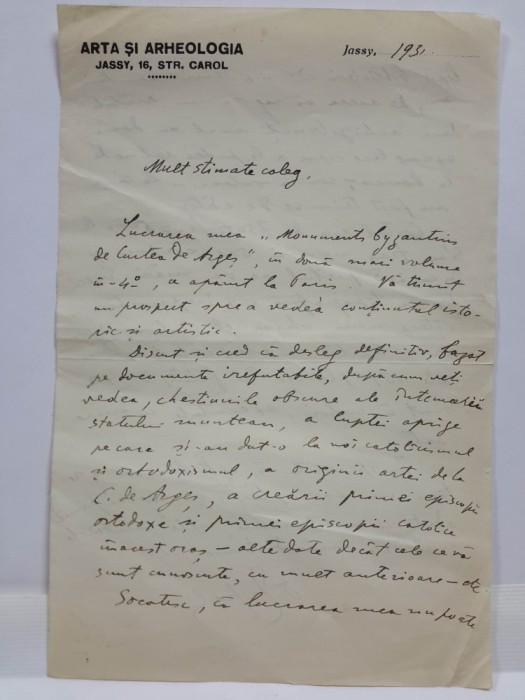 ARTA ȘI ARHEOLOGIA
JASSY, 16, STR. CAROL
Jassy, 193
Mult stimate coleg,
Lucrarea mea „Monuments byzantins
de Curtea de Argeș”, în două mari volume
in-4º, a apărut la Paris. Vă trimit
un prospect spre a vedea conținutul isto-
ric și artistic.
Discut și cred că desleg definitiv, bazat
pe documente irefutabile, după cum veți
vedea, chestiunile obscure ale întemeierii
statului muntean, a luptei aprige
pe care și-au dat-o la noi catolicismul
și ortodoxismul, a originii artei de la
C. de Argeș, a creării primei episcopii
ortodoxe și primei episcopii catolice
în acest oraș – alte date decât cele ce vă
sunt cunoscute, cu mult anterioare – etc
Socotesc, că lucrarea mea nu poate